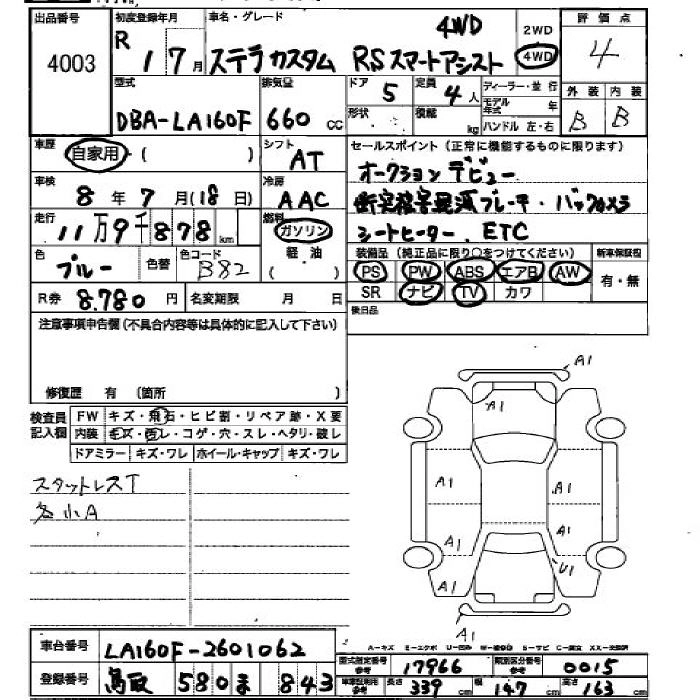 出品番号 初度登録年月 車名・グレード 評価点
4003 R 1 7月 ステラカスタム RSスマートアシスト 4WD 2WD 4WD 4
型式 排気量 ドア 5 定員 4人 ディーラー・並行
モデル年式 年 外装 内装
DBA-LA160F 660cc 形状 積載 kg ハンドル 左・右 B B
車歴 自家用・( ) シフト AT セールスポイント(正常に機能するものに限ります)
オークションデビュー
車検 8年7月(18日) 冷房 AAC 衝突被害軽減ブレーキ・バックカメラ
走行 11万9千878km 燃料 ガソリン シートヒーター. ETC
色 ブルー 色替 色コード B82 軽油 ( ) 装備品(純正品に限り○をつけてください) 新車保証書
PS PW ABS エアB AW 有・無
R券 8.780円 名変期限 月 日 SR ナビ TV カワ
注意事項申告欄(不具合内容等は具体的に記入して下さい) 後日品
修復歴 有 (箇所 )
検査員記入欄 FW キズ・飛石・ヒビ割・リペア跡・X要
内装 キズ・汚レ・コゲ・穴・スレ・ヘタリ・破レ
ドアミラー キズ・ワレ ホイール・キャップ キズ・ワレ
スタットレスT
各小A
A1
A1
A1 A1
A1
A1 U1
A1
A1
車台番号 LA160F-2601062
登録番号 鳥取 580 ま 843
型式指定番号 参考 17966 類別区分番号 参考 0015
長さ 339cm 幅 147cm 高さ 163cm